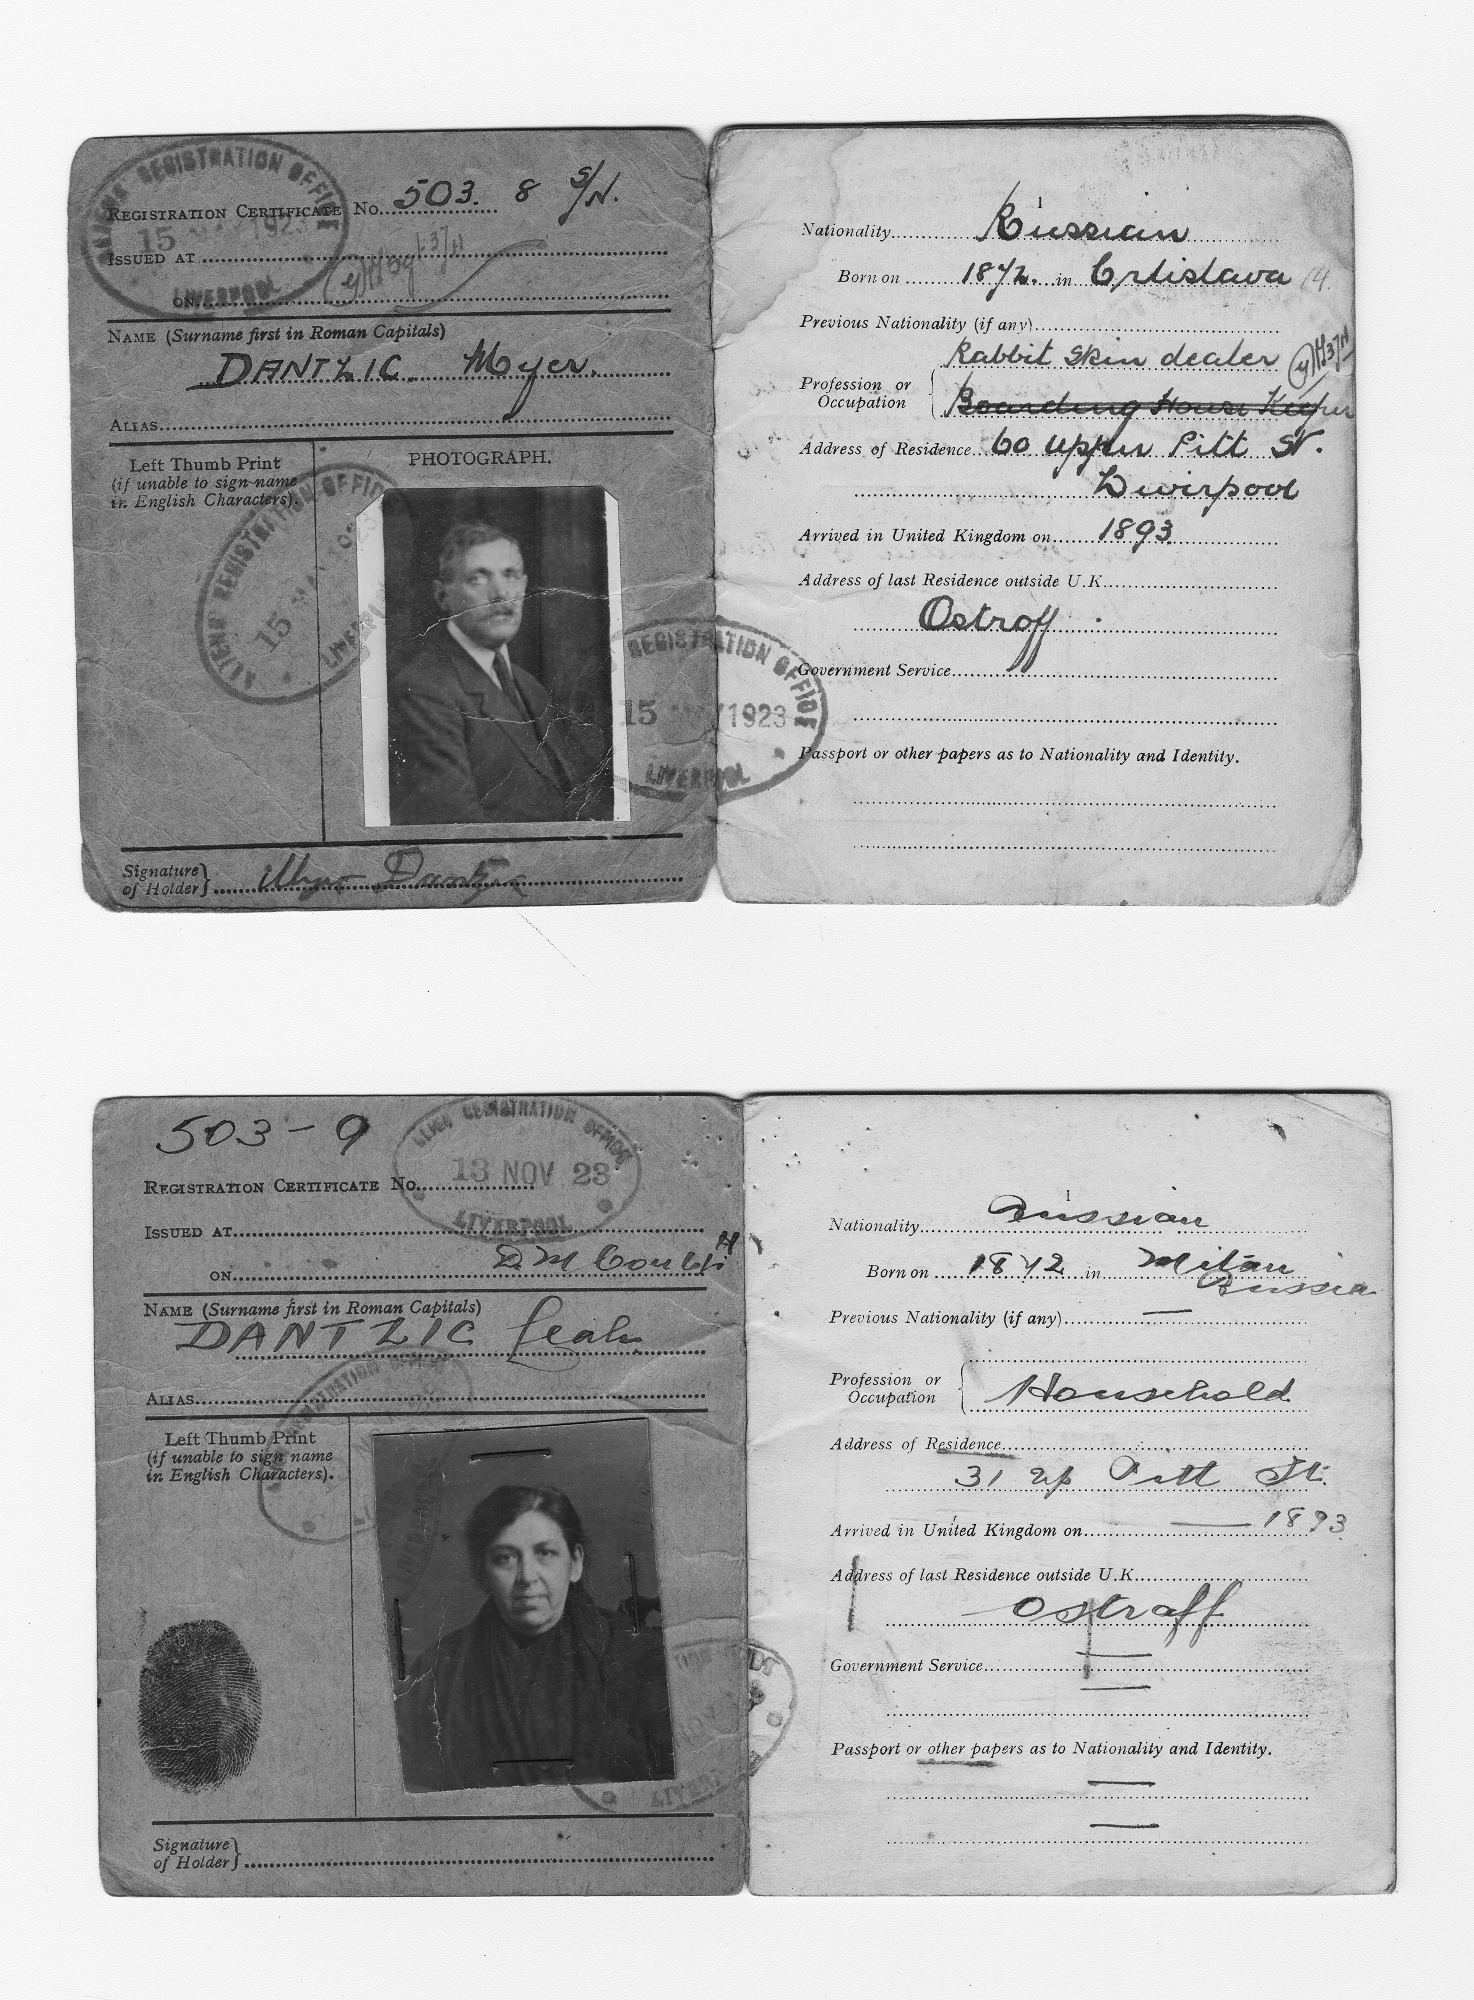 ALIENS REGISTRATION OFFICE
15 MAY 1923
LIVERPOOL
REGISTRATION CERTIFICATE No. 503. 8 S/N.
ISSUED AT
ON
NAME (Surname first in Roman Capitals)
DANTZIC Myer.
ALIAS
Left Thumb Print
(if unable to sign name
in English Characters).
PHOTOGRAPH.
ALIENS REGISTRATION OFFICE
15 MAY 1923
LIVERPOOL
REGISTRATION OFFICE
15 MAY 1923
LIVERPOOL
Signature
of Holder} Myer Dantzic
1
Nationality Russian
Born on 1872. in
Previous Nationality (if any)
Rabbit Skin dealer
Profession or
Occupation
Boarding House Keeper
Address of Residence 60 Upper Pitt St.
Liverpool
Arrived in United Kingdom on 1893
Address of last Residence outside U.K.
Ostroff
Government Service
Passport or other papers as to Nationality and Identity.
503-9
ALIENS REGISTRATION OFFICE
13 NOV 23
LIVERPOOL
REGISTRATION CERTIFICATE No.
ISSUED AT
ON
NAME (Surname first in Roman Capitals)
DANTZIC Leah
ALIAS
Left Thumb Print
(if unable to sign name
in English Characters).
Signature
of Holder}
1
Nationality Russian
Born on 1872 in Milan
Russia
Previous Nationality (if any) —
Profession or
Occupation
Household
Address of Residence
31 Up Pitt St.
Arrived in United Kingdom on — 1893
Address of last Residence outside U.K.
Ostraff
Government Service —
—
Passport or other papers as to Nationality and Identity.
—
—